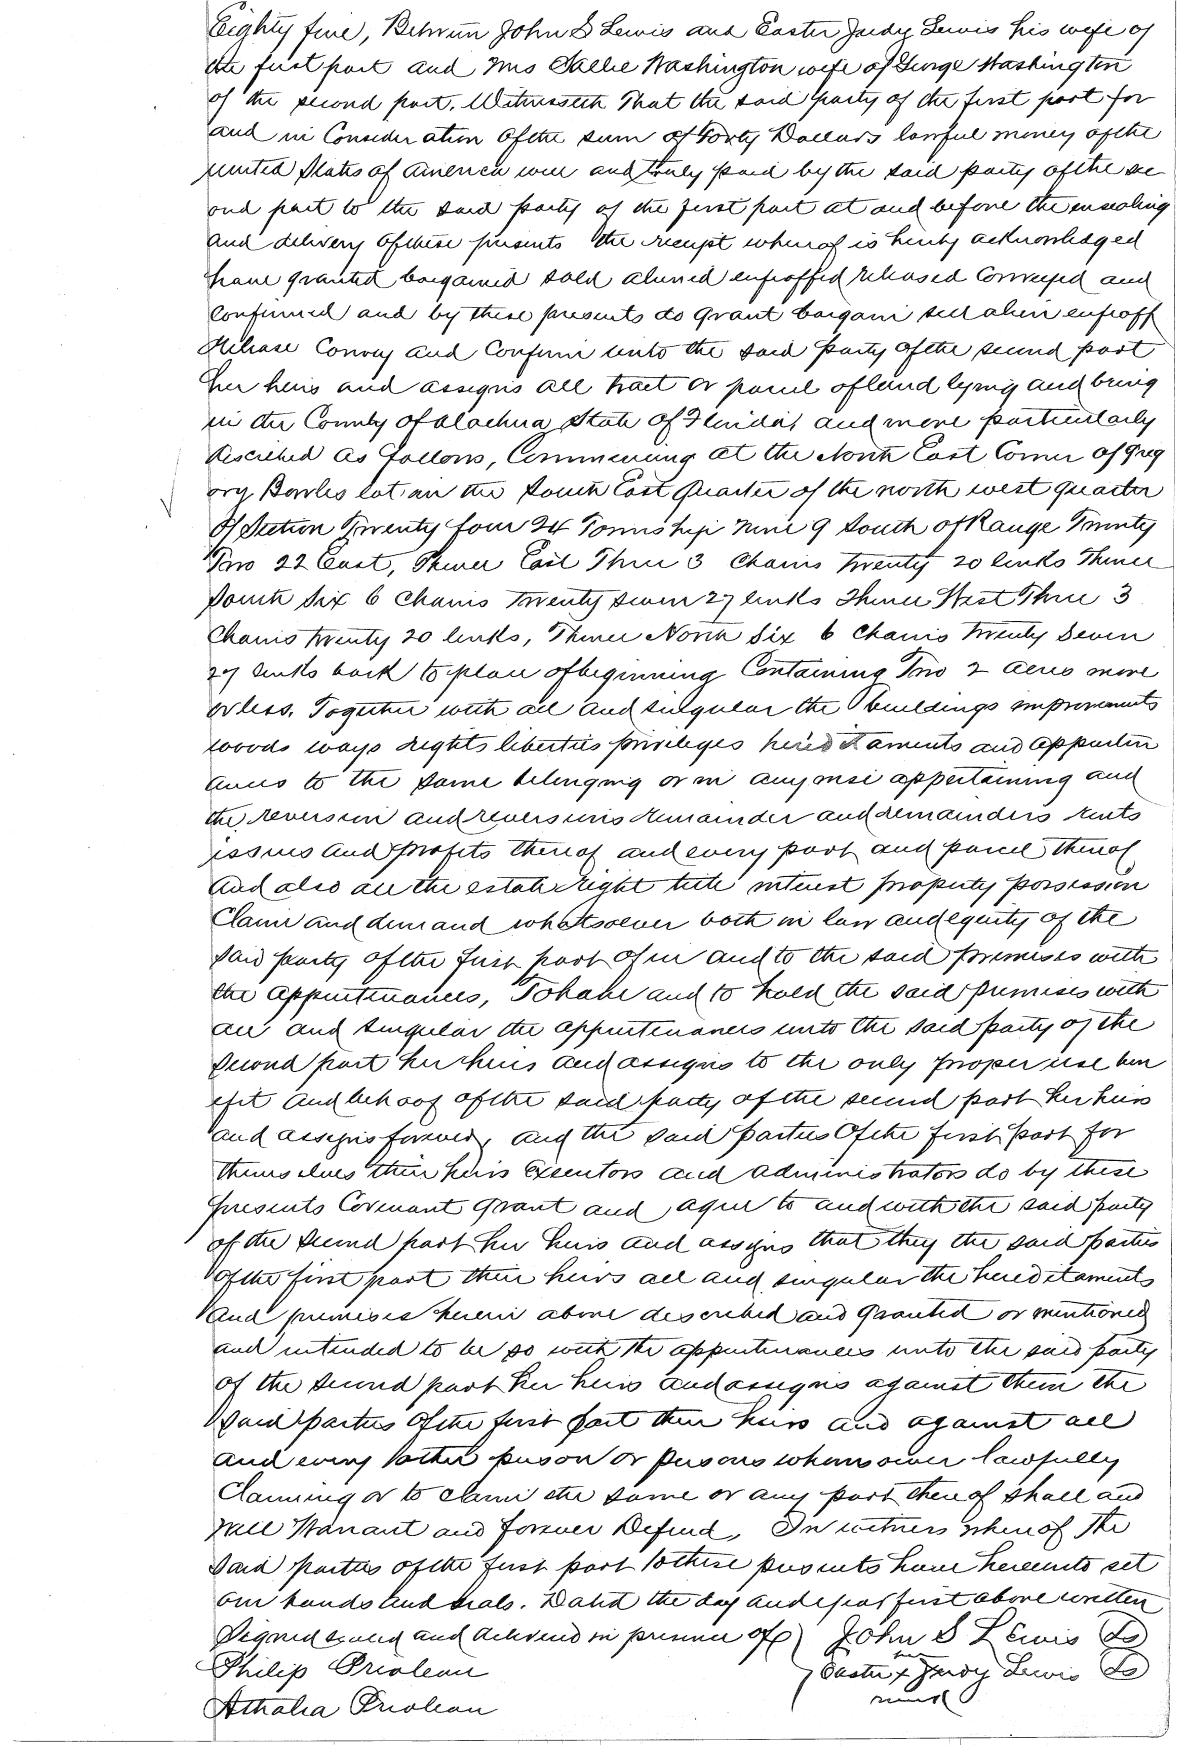 Eighty five, Between John S Lewis and Easter Judy Lewis his wife of
the first part and Mrs Sallie Washington wife of George Washington
of the second part. Witnesseth That the said party of the first part for
and in Consideration Of the sum of Forty Dollars lawful money of the
United States of America well and truly paid by the said party of the sec
ond part to the said party of the first part at and before the ensealing
and delivery Of these presents the receipt whereof is hereby acknowledged
have granted bargained sold aliened enfeoffed released Conveyed and
Confirmed and by these presents do grant bargain sell alien enfeoff
Release Convey and Confirm unto the said party Of the second part
her heirs and assigns all tract or parcel of land lying and being
in the County of Alachua State of Florida, and more particularly
described as follows, Commencing at the North East Corner of Greg
ory Bowles lot in the South East Quarter of the north west quarter
Of Section Twenty four 24 Township nine 9 South of Range Twenty
Two 22 East, Thence East Three 3 Chains twenty 20 links Thence
South Six 6 Chains twenty seven 27 links Thence West Three 3
Chains twenty 20 links, Thence North Six 6 Chains twenty Seven
27 links back to place of beginning Containing Two 2 acres more
or less. Together with all and singular the buildings improvements
woods ways rights liberties privileges hereditaments and appurten
ances to the same belonging or in any wise appertaining and
the reversion and reversions remainder and remainders rents
issues and profits thereof and every part and parcel thereof
And also all the estate right title interest property possession
Claim and demand whatsoever both in law and equity of the
said party of the first part of in and to the said premises with
the appurtenances, To have and to hold the said premises with
all and singular the appurtenances unto the said party of the
second part her heirs and assigns to the only proper use ben
efit and behoof of the said party of the second part her heirs
and assigns forever, and the said parties Of the first part for
themselves their heirs executors and administrators do by these
presents Covenant grant and agree to and with the said party
of the second part her heirs and assigns that they the said parties
of the first part their heirs all and singular the hereditaments
and premises herein above described and granted or mentioned
and intended to be so with the appurtenances unto the said party
of the second part her heirs and assigns against them the
said parties of the first part their heirs and against all
and every other person or persons whomsoever lawfully
Claiming or to claim the same or any part thereof shall and
will Warrant and forever Defend. In witness whereof the
said parties of the first part to these presents have hereunto set
our hands and seals. Dated the day and year first above written
Signed sealed and delivered in presence of John S Lewis LS
her
Philip Prioleau Easter x Judy Lewis LS
Athalia Prioleau mark